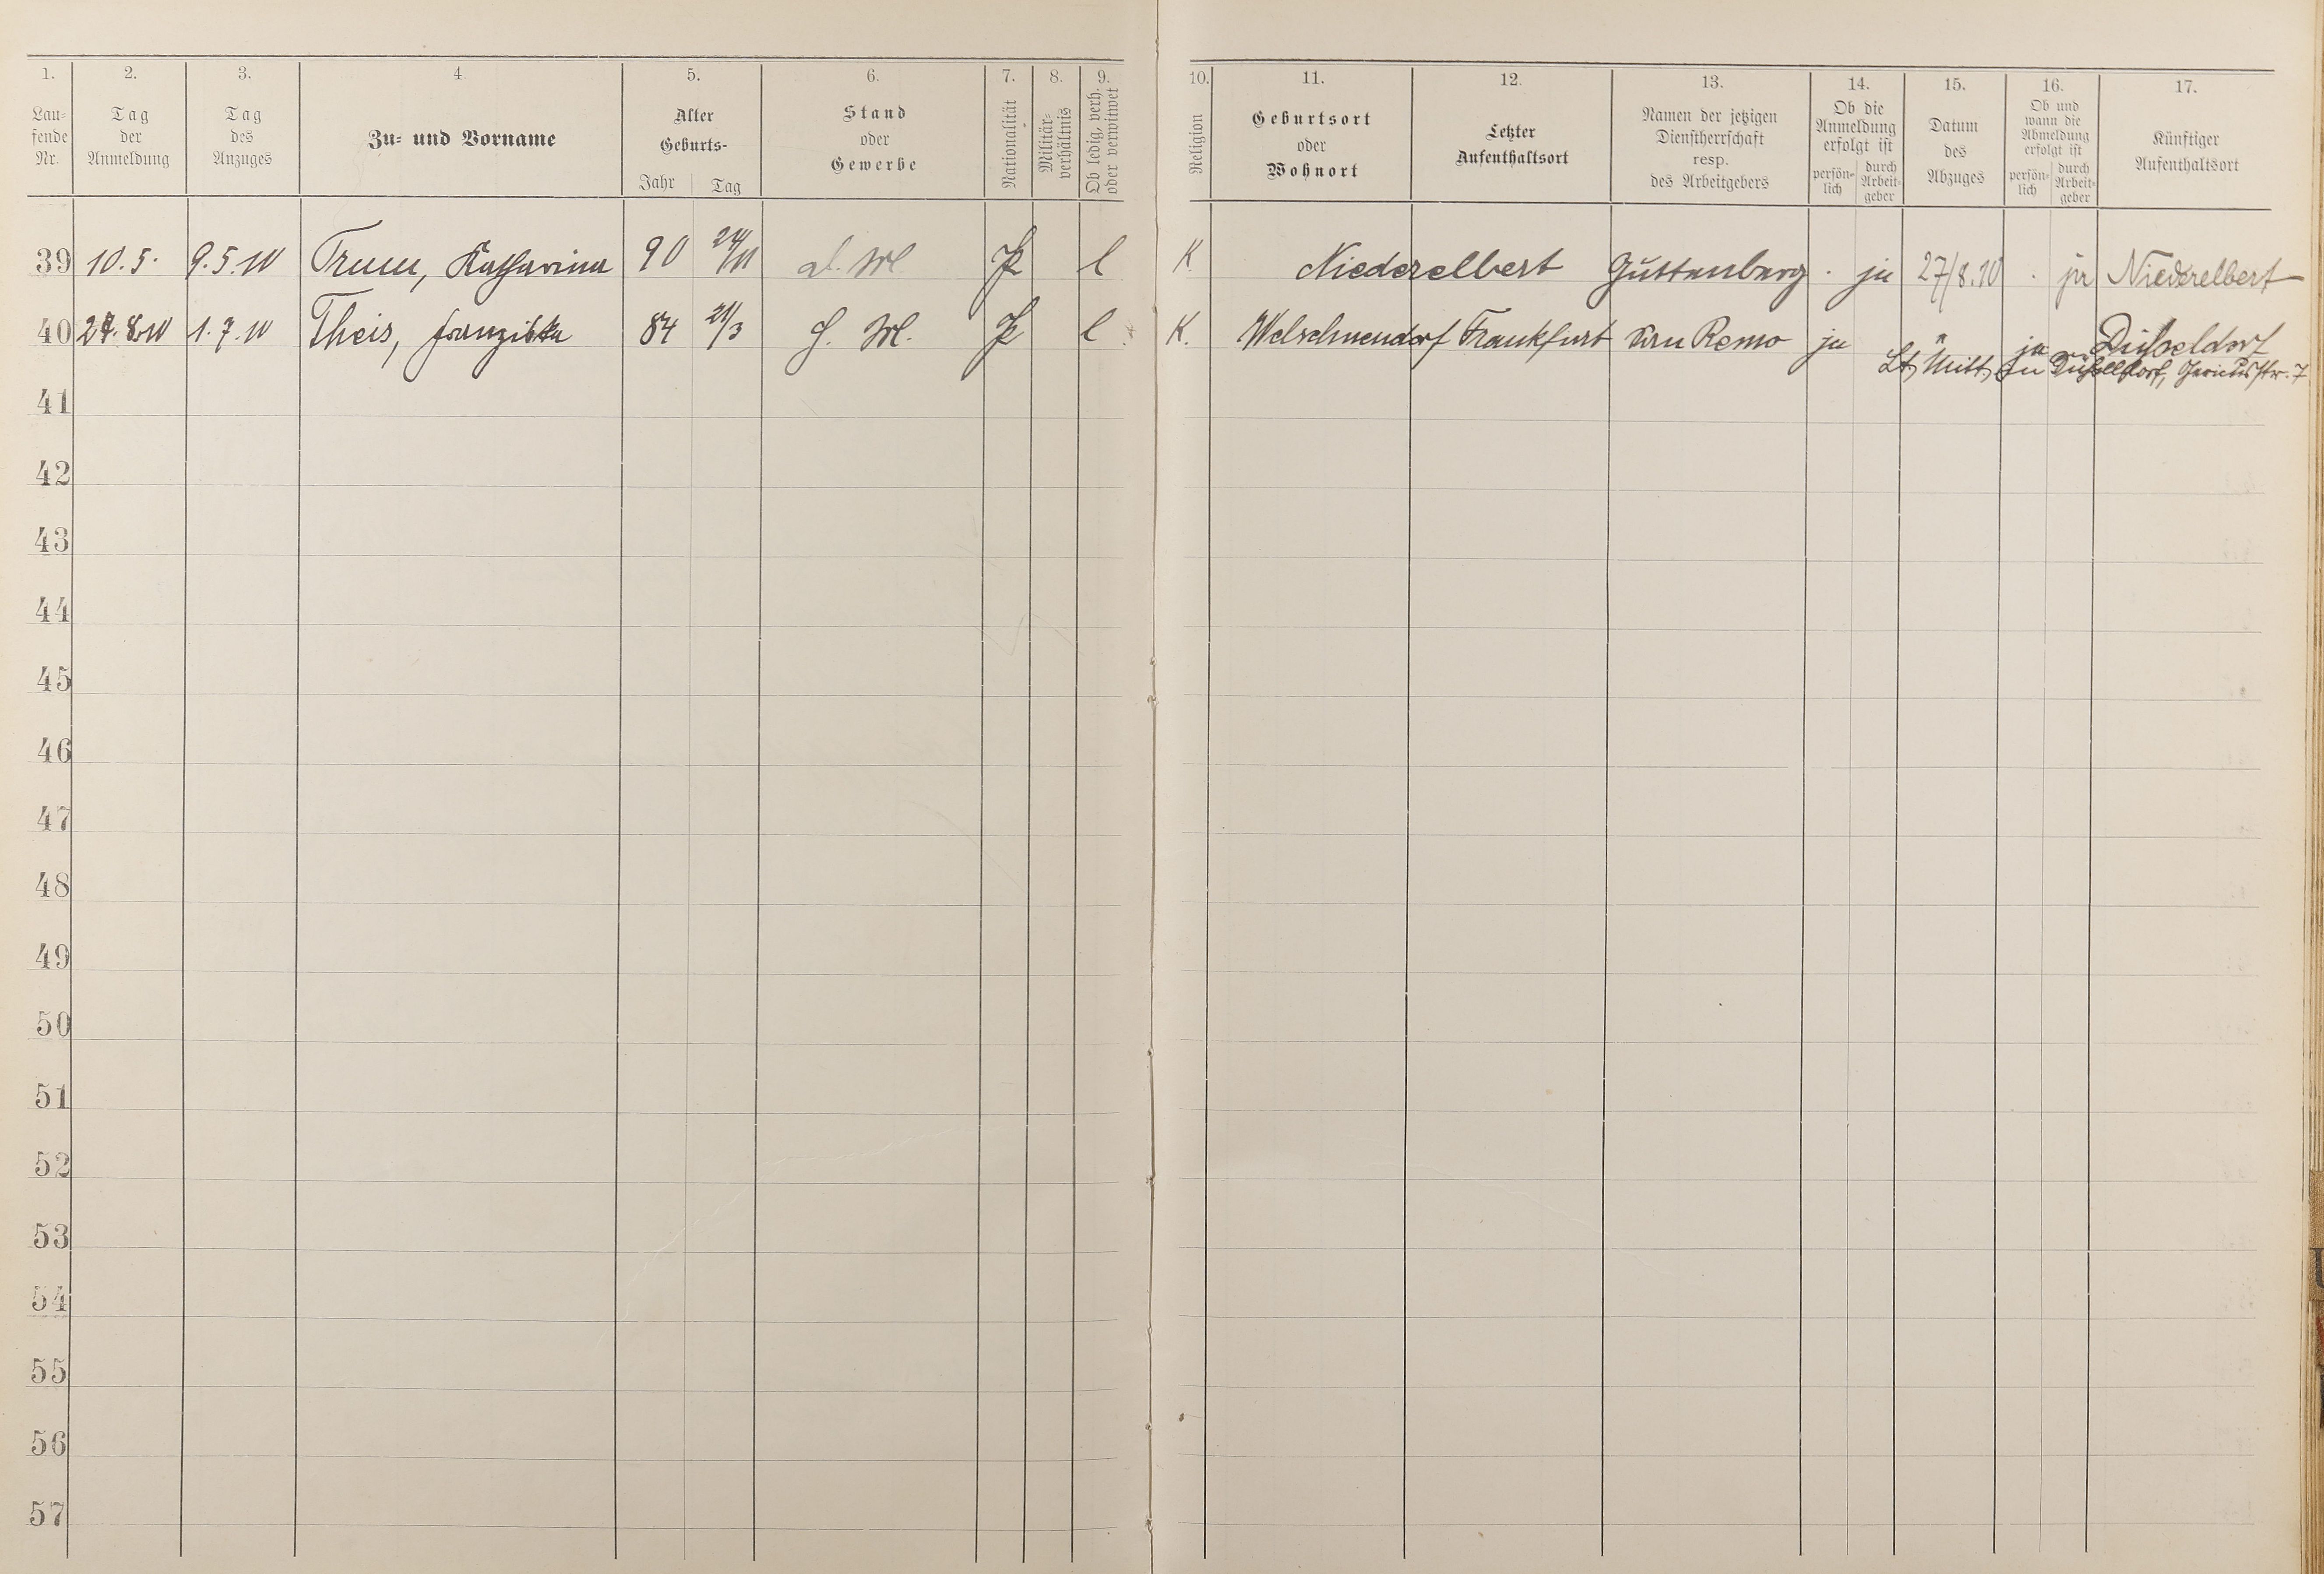 1. 2. 3. 4 5. 6. 7. 8. 9. 10. 11. 12. 13. 14. 15. 16. 17.
Lau-
fende
Nr.
Tag
der
Anmeldung
Tag
des
Anzuges
Zu- und Vorname
Alter
Geburts-
Jahr Tag
Stand
oder
Gewerbe
Nationalität
Militär-
verhältnis
Ob ledig, verh.
oder verwitwet
Religion
Geburtsort
oder
Wohnort
Letzter
Aufenthaltsort
Namen der jetzigen
Dienstherrschaft
resp.
des Arbeitgebers
Ob die
Anmeldung
erfolgt ist
persön-
lich
durch
Arbeit-
geber
Datum
des
Abzuges
Ob und
wann die
Abmeldung
erfolgt ist
persön-
lich
durch
Arbeit-
geber
Künftiger
Aufenthaltsort
39 10.5. 9.5.10 Katharina 90 24/11 d. M. P l K Niederelbert Guttenberg . ja 27/8.10 . ja Niederelbert
40 27.8.10 1.7.10 Theis, Franziska 84 21/3 J. M. P l K. Welschneudorf Frankfurt San Remo ja " ja Düßeldorf
Lt. Mitt. in Düßeldorf, 7
41
42
43
44
45
46
47
48
49
50
51
52
53
54
55
56
57